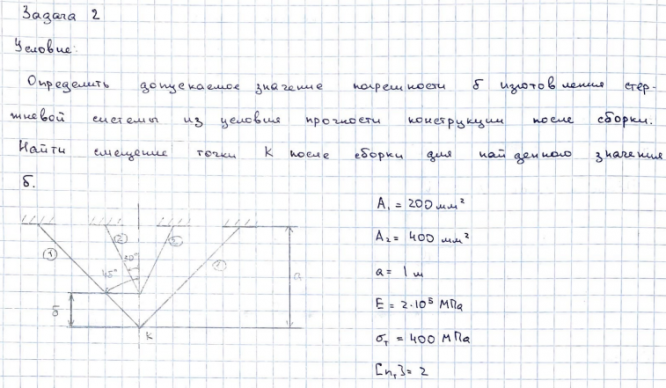 Задача 2
Условие:
Определить допускаемое значение погрешности б изготовления стер-
жневой системы из условия прочности конструкции после сборки.
Найти смещение точки К после сборки для найденного значения
б.
A₁ = 200 мм²
A₂ = 400 мм²
a = 1 м
E = 2·10⁵ МПа
σт = 400 МПа
[nт] = 2
② ②
① 30° ①
45° a
б
K